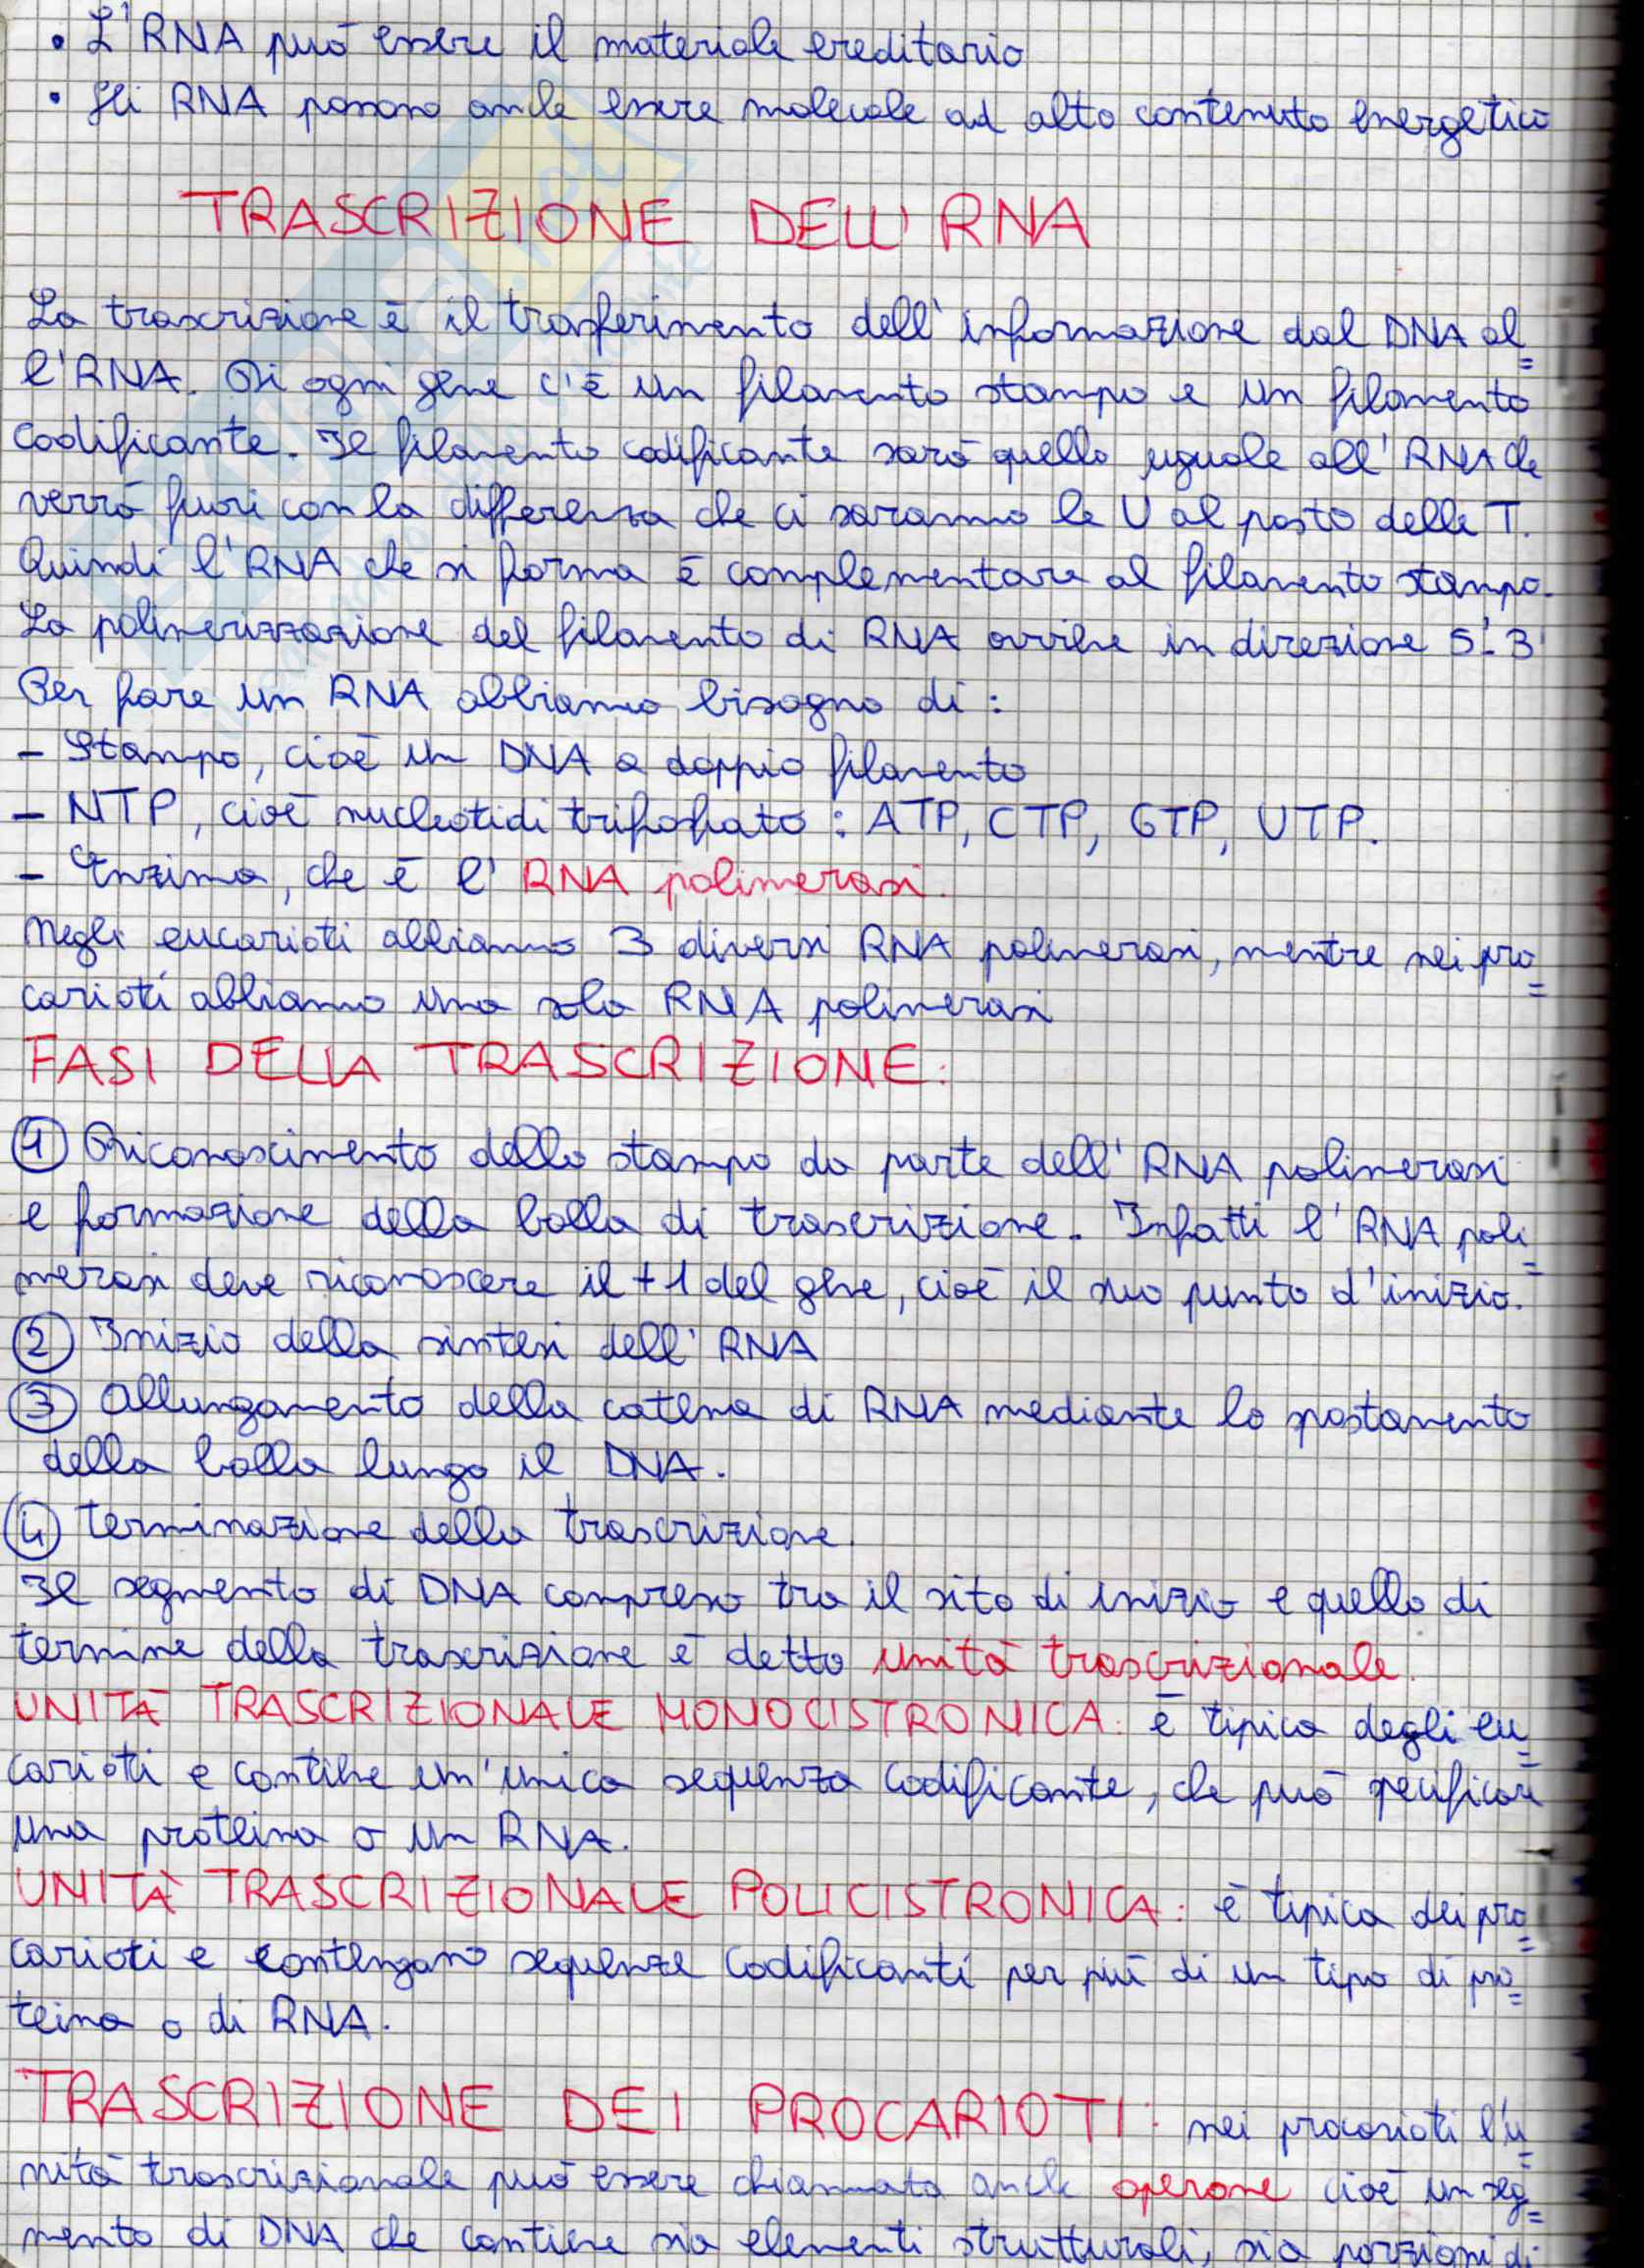 • L'RNA può essere il materiale ereditario
• Gli RNA possono anche essere molecole ad alto contenuto energetico
TRASCRIZIONE DELL'RNA
La trascrizione è il trasferimento dell'informazione dal DNA al=
l'RNA. Di ogni gene c'è un filamento stampo e un filamento
codificante. Il filamento codificante sarà quello uguale all'RNA che
verrà fuori con la differenza che ci saranno le U al posto delle T.
Quindi l'RNA che si forma è complementare al filamento stampo.
La polimerizzazione del filamento di RNA avviene in direzione 5'-3'
Per fare un RNA abbiamo bisogno di:
- Stampo, cioè un DNA a doppio filamento
- NTP, cioè nucleotidi trifosfato: ATP, CTP, GTP, UTP.
- Enzima, che è l'RNA polimerasi.
Negli eucarioti abbiamo 3 diversi RNA polimerasi, mentre nei pro=
carioti abbiamo una sola RNA polimerasi
FASI DELLA TRASCRIZIONE:
① Riconoscimento dello stampo da parte dell'RNA polimerasi
e formazione della bolla di trascrizione. Infatti l'RNA poli=
merasi deve riconoscere il +1 del gene, cioè il suo punto d'inizio.
② Inizio della sintesi dell'RNA
③ Allungamento della catena di RNA mediante lo spostamento
della bolla lungo il DNA.
④ Terminazione della trascrizione.
Il segmento di DNA compreso tra il sito di inizio e quello di
termine della trascrizione è detto unità trascrizionale.
UNITÀ TRASCRIZIONALE MONOCISTRONICA: è tipica degli eu=
carioti e contiene un'unica sequenza codificante, che può specificare
una proteina o un RNA.
UNITÀ TRASCRIZIONALE POLICISTRONICA: è tipica dei pro=
carioti e contengano sequenze codificanti per più di un tipo di pro=
teina o di RNA.
TRASCRIZIONE DEI PROCARIOTI: nei procarioti l'u=
nità trascrizionale può essere chiamata anche operone cioè un seg=
mento di DNA che contiene sia elementi strutturali, sia porzioni di